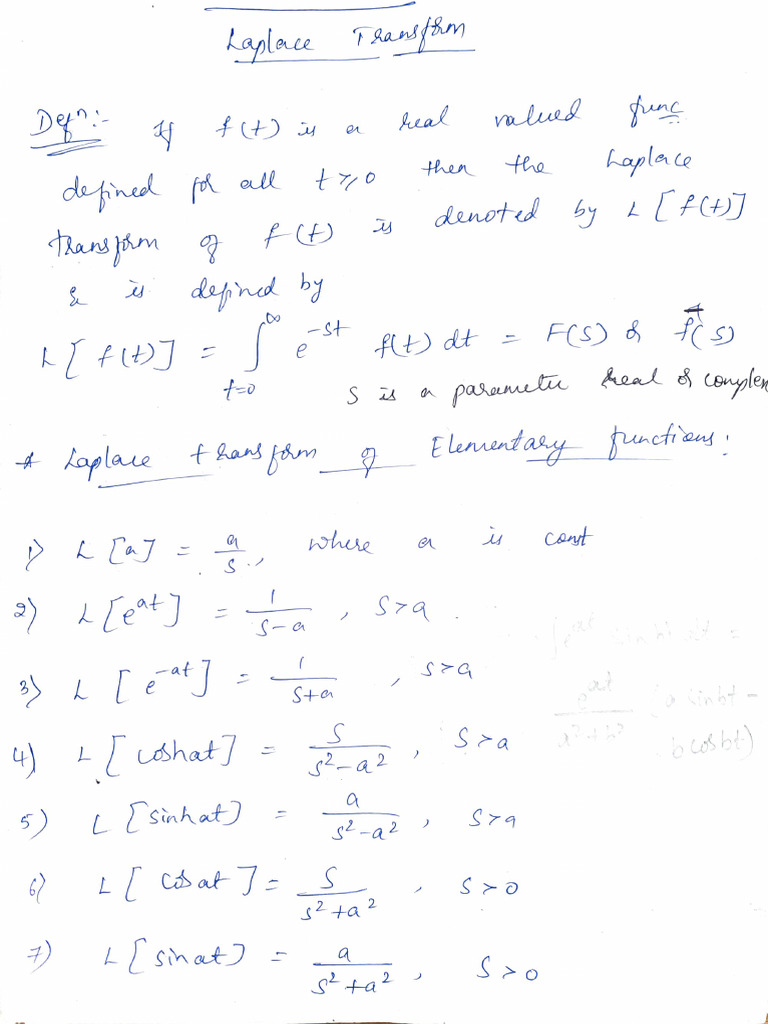 Laplace Transform
Defn:- If f(t) is a real valued func
defined for all t ≥ 0 then the Laplace
transform of f(t) is denoted by L[f(t)]
& is defined by
L[f(t)] = ∫_{t=0}^{∞} e^{-st} f(t) dt = F(s) or f̄(s)
s is a parameter real or complex
* Laplace transform of Elementary functions:
1) L[a] = a/s, where a is const
2) L[e^{at}] = 1/(s-a), s>a
3) L[e^{-at}] = 1/(s+a), s>a
4) L[coshat] = s/(s²-a²), s>a
5) L[sinhat] = a/(s²-a²), s>a
6) L[cosat] = s/(s²+a²), s>0
7) L[sinat] = a/(s²+a²), s>0